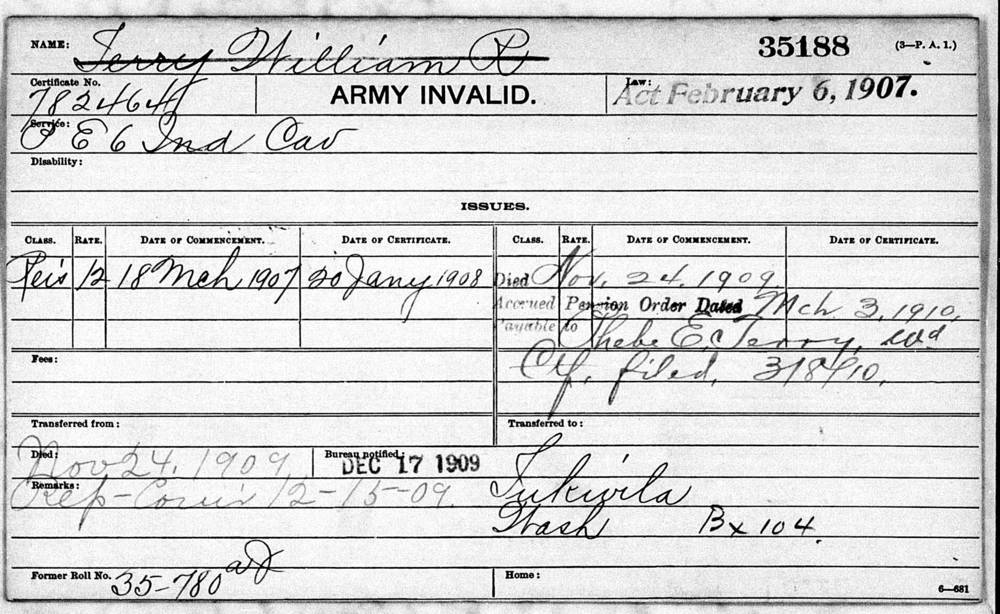 NAME: Terry William R 35188 (3—P. A. 1.)
Certificate No. 782464 ARMY INVALID. Law: Act February 6, 1907.
Service: E 6 Ind Cav
Disability:
ISSUES.
CLASS. RATE. DATE OF COMMENCEMENT. DATE OF CERTIFICATE. CLASS. RATE. DATE OF COMMENCEMENT. DATE OF CERTIFICATE.
Reis 12 18 Mch 1907 20 Jany 1908 Died Nov. 24. 1909
Accrued Pension Order Dated Mch 3, 1910,
Payable to Phebe E. Terry, wd
Fees: Cf. filed, 318/10.
Transferred from: Transferred to:
Died: Nov 24. 1909 Bureau notified: DEC 17 1909
Remarks: Rep- 12-15-09. Tukwila
Wash Bx 104.
Former Roll No. 35-780 Home:
6—681